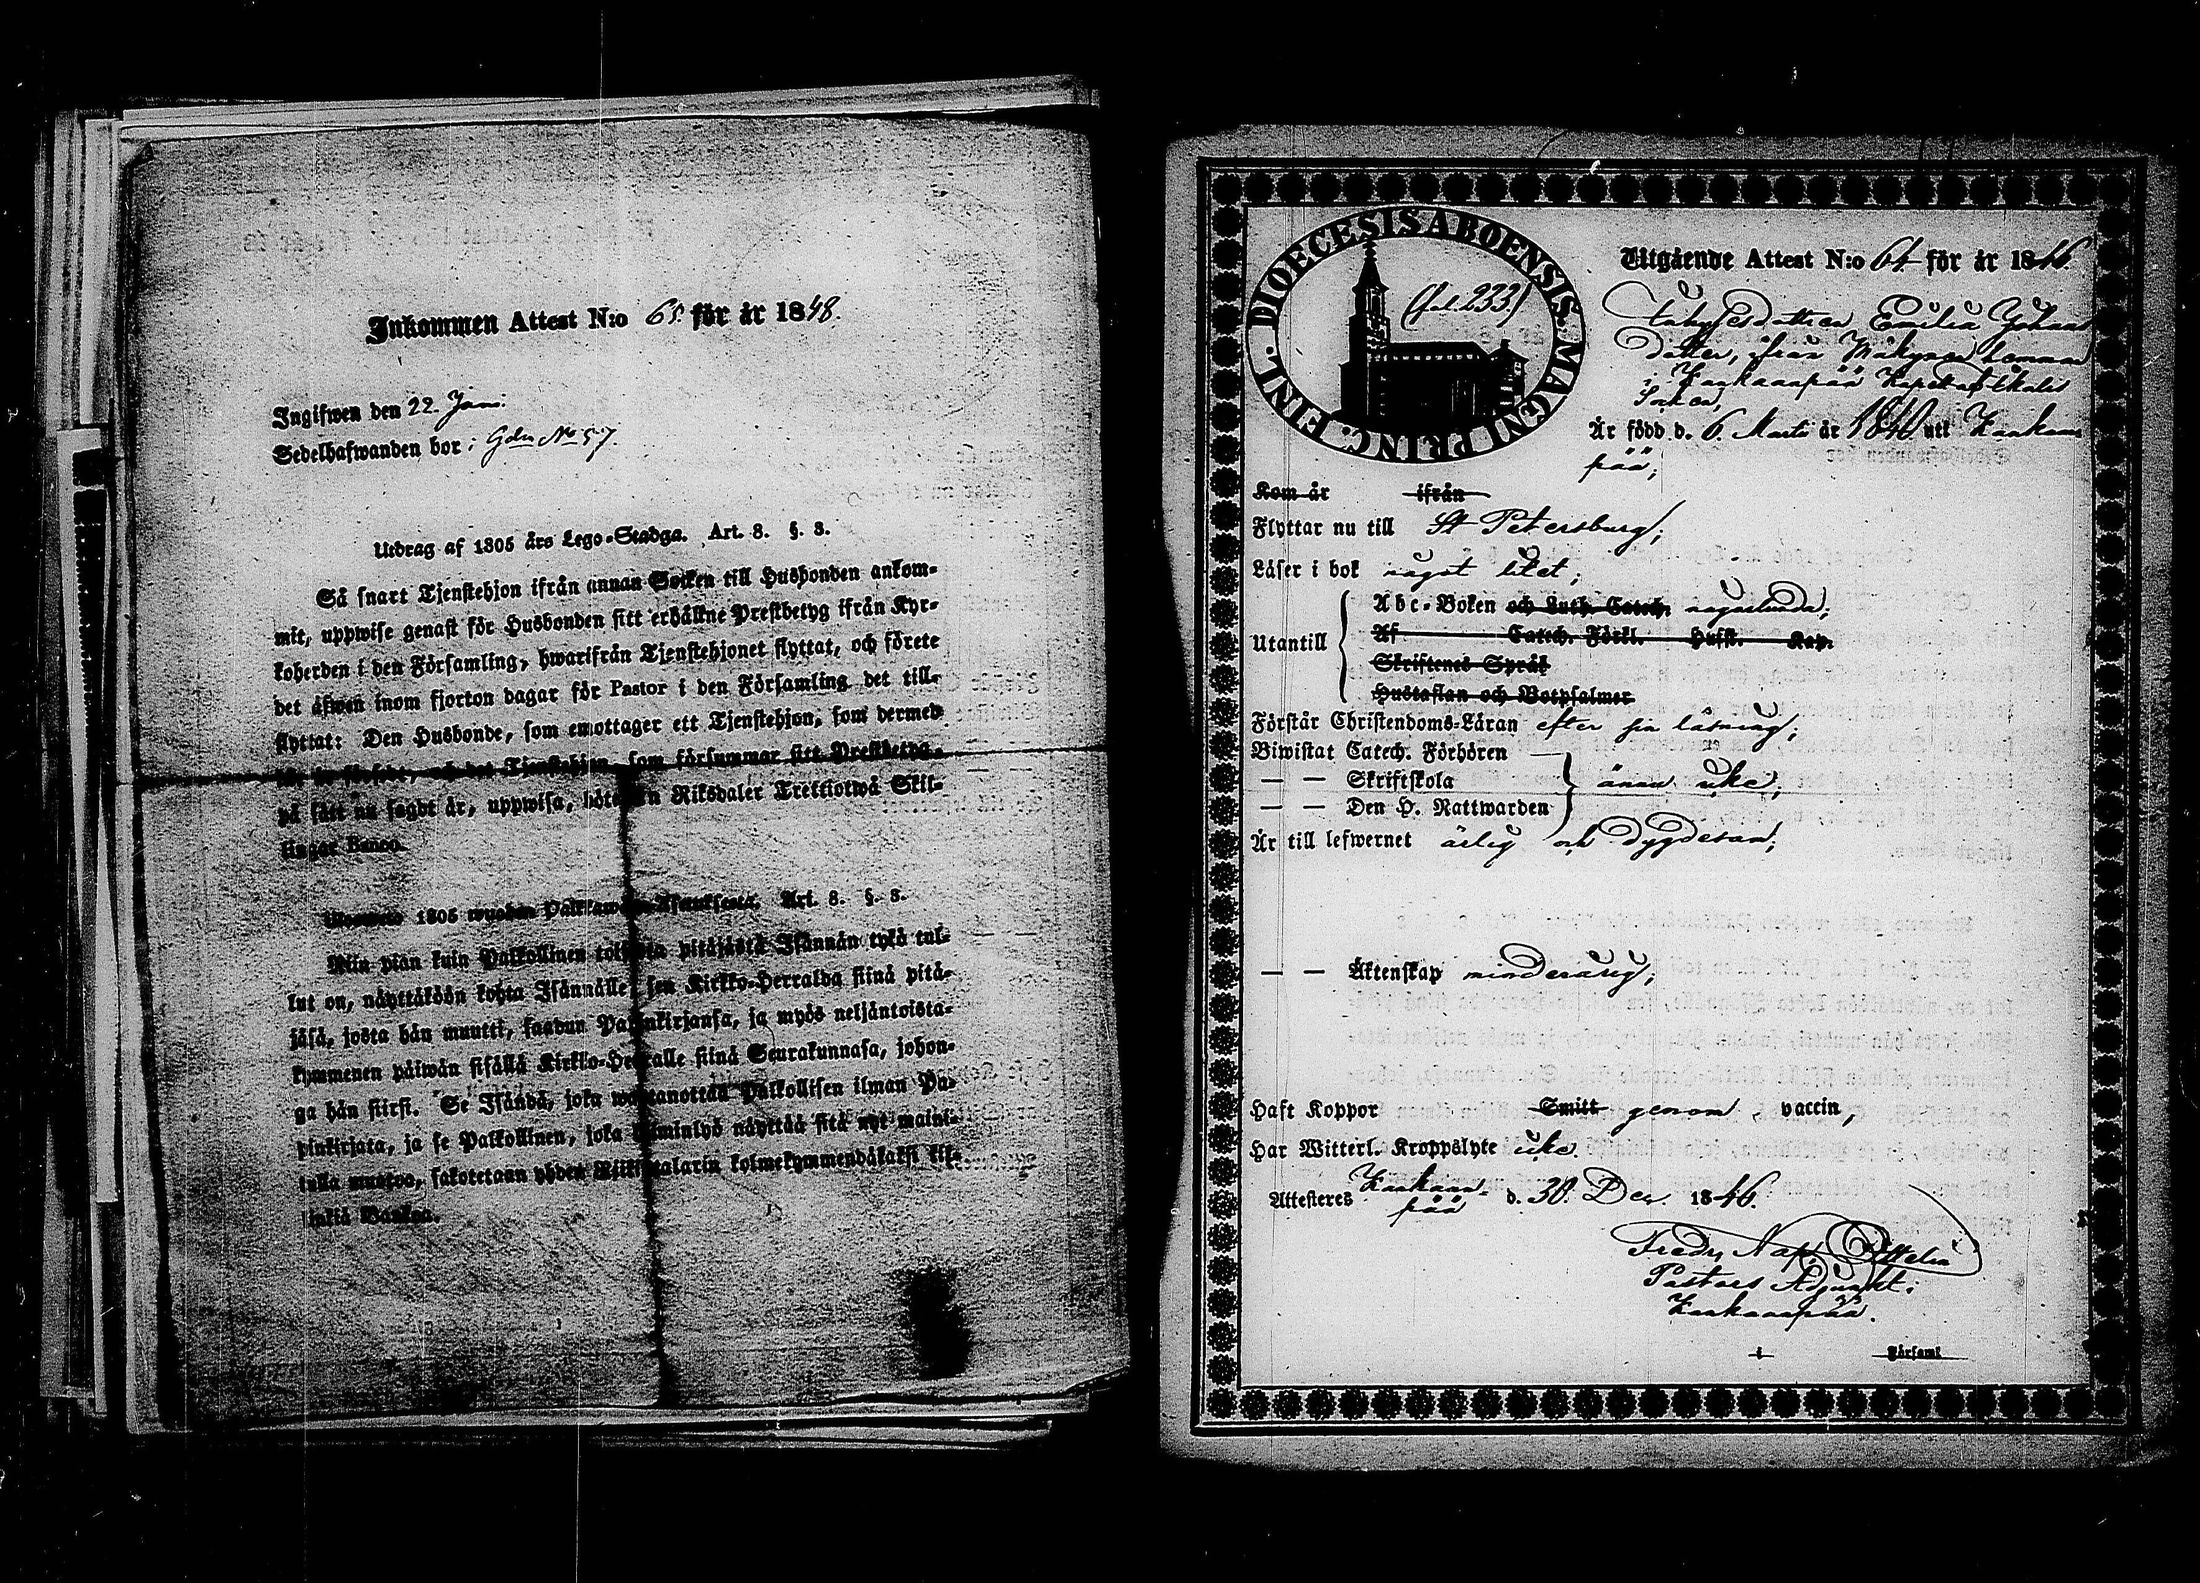 Inkommen Attest N:o 65. för år 1848.
Ingifwen den 22. Jan:
Sedelhafwanden bor: Gdn No 57.
Utdrag af 1805 års Lego-Stadga. Art. 8. §. 3.
Så snart Tjenstehjon ifrån annan Socken till Husbonden ankom-
mit, uppwise genast för Husbonden sitt erhållne Prestbetyg ifrån Kyr-
koherden i den Församling, hwarifrån Tjenstehjonet flyttat, och förete
det äfwen inom fjorton dagar för Pastor i den Församling det till-
flyttat: Den Husbonde, som emottager ett Tjenstehjon, som dermed
och det Tjenstehjon, som försummar sitt Prestbetyg
på sätt nu sagdt är, uppwisa, böte en Riksdaler Trettiotwå Skil-
lingar Banco.
1805 wuoden Palkkawäen Asetuksesta. Art. 8. §. 3.
Niin pian kuin Palkollinen toisesta pitäjästä Isännän tykö tul-
lut on, näyttäköön kohta Isännälle, sen Kirkko-Herralda siinä pitä-
jäsä, josta hän muutti, saadun Papinkirjansa, ja myös neljäntoista-
kymmenen päiwän sisällä Kirkko-Herralle siinä Seurakunnasa, johon-
ga hän siirsi. Se Isändä, joka wastanottaa Palkollisen ilman Pa-
pinkirjata, ja se Palkollinen, joka laiminlyö näyttää sitä nyt maini-
tulla muotoa, sakotetaan yhden Riikintalarin kolmekymmendäkaksi kil-
linkiä Bankoa.
DIOECESIS ABOENSIS. MAGNI PRINC. FINL.
(fol. 233.)
Utgående Attest N:o 64 för år 1846.
Emilia Johans
dotter, ifrån
i Kankaanpää Kapell af Ikalis
Socken,
Är född d. 6. Martii år 1840 uti Kankaan
pää;
Kom år ifrån
Flyttar nu till St Petersburg;
Läser i bok något litet;
Utantill
Abc-Boken och Luth. Catech. någorlunda;
Af Catech. Förkl. Husst. Kap.
Skriftenes Språk
Hustaflan och Botpsalmer
Förstår Christendoms-Läran efter sin läsning;
Biwistat Catech. Förhören
— — Skriftskola ännu icke;
— — Den H. Nattwarden
Är till lefwernet ärlig och dygdesam;
— — Äktenskap minderårig;
Haft Koppor Smitt genom vaccin,
Har Witterl. Kroppslyte icke.
Attesteres Kankaan-
pää d. 30. Dec. 1846.
Fredr. Nap.
Pastors Adjunkt i
Kankaanpää.
i Församl